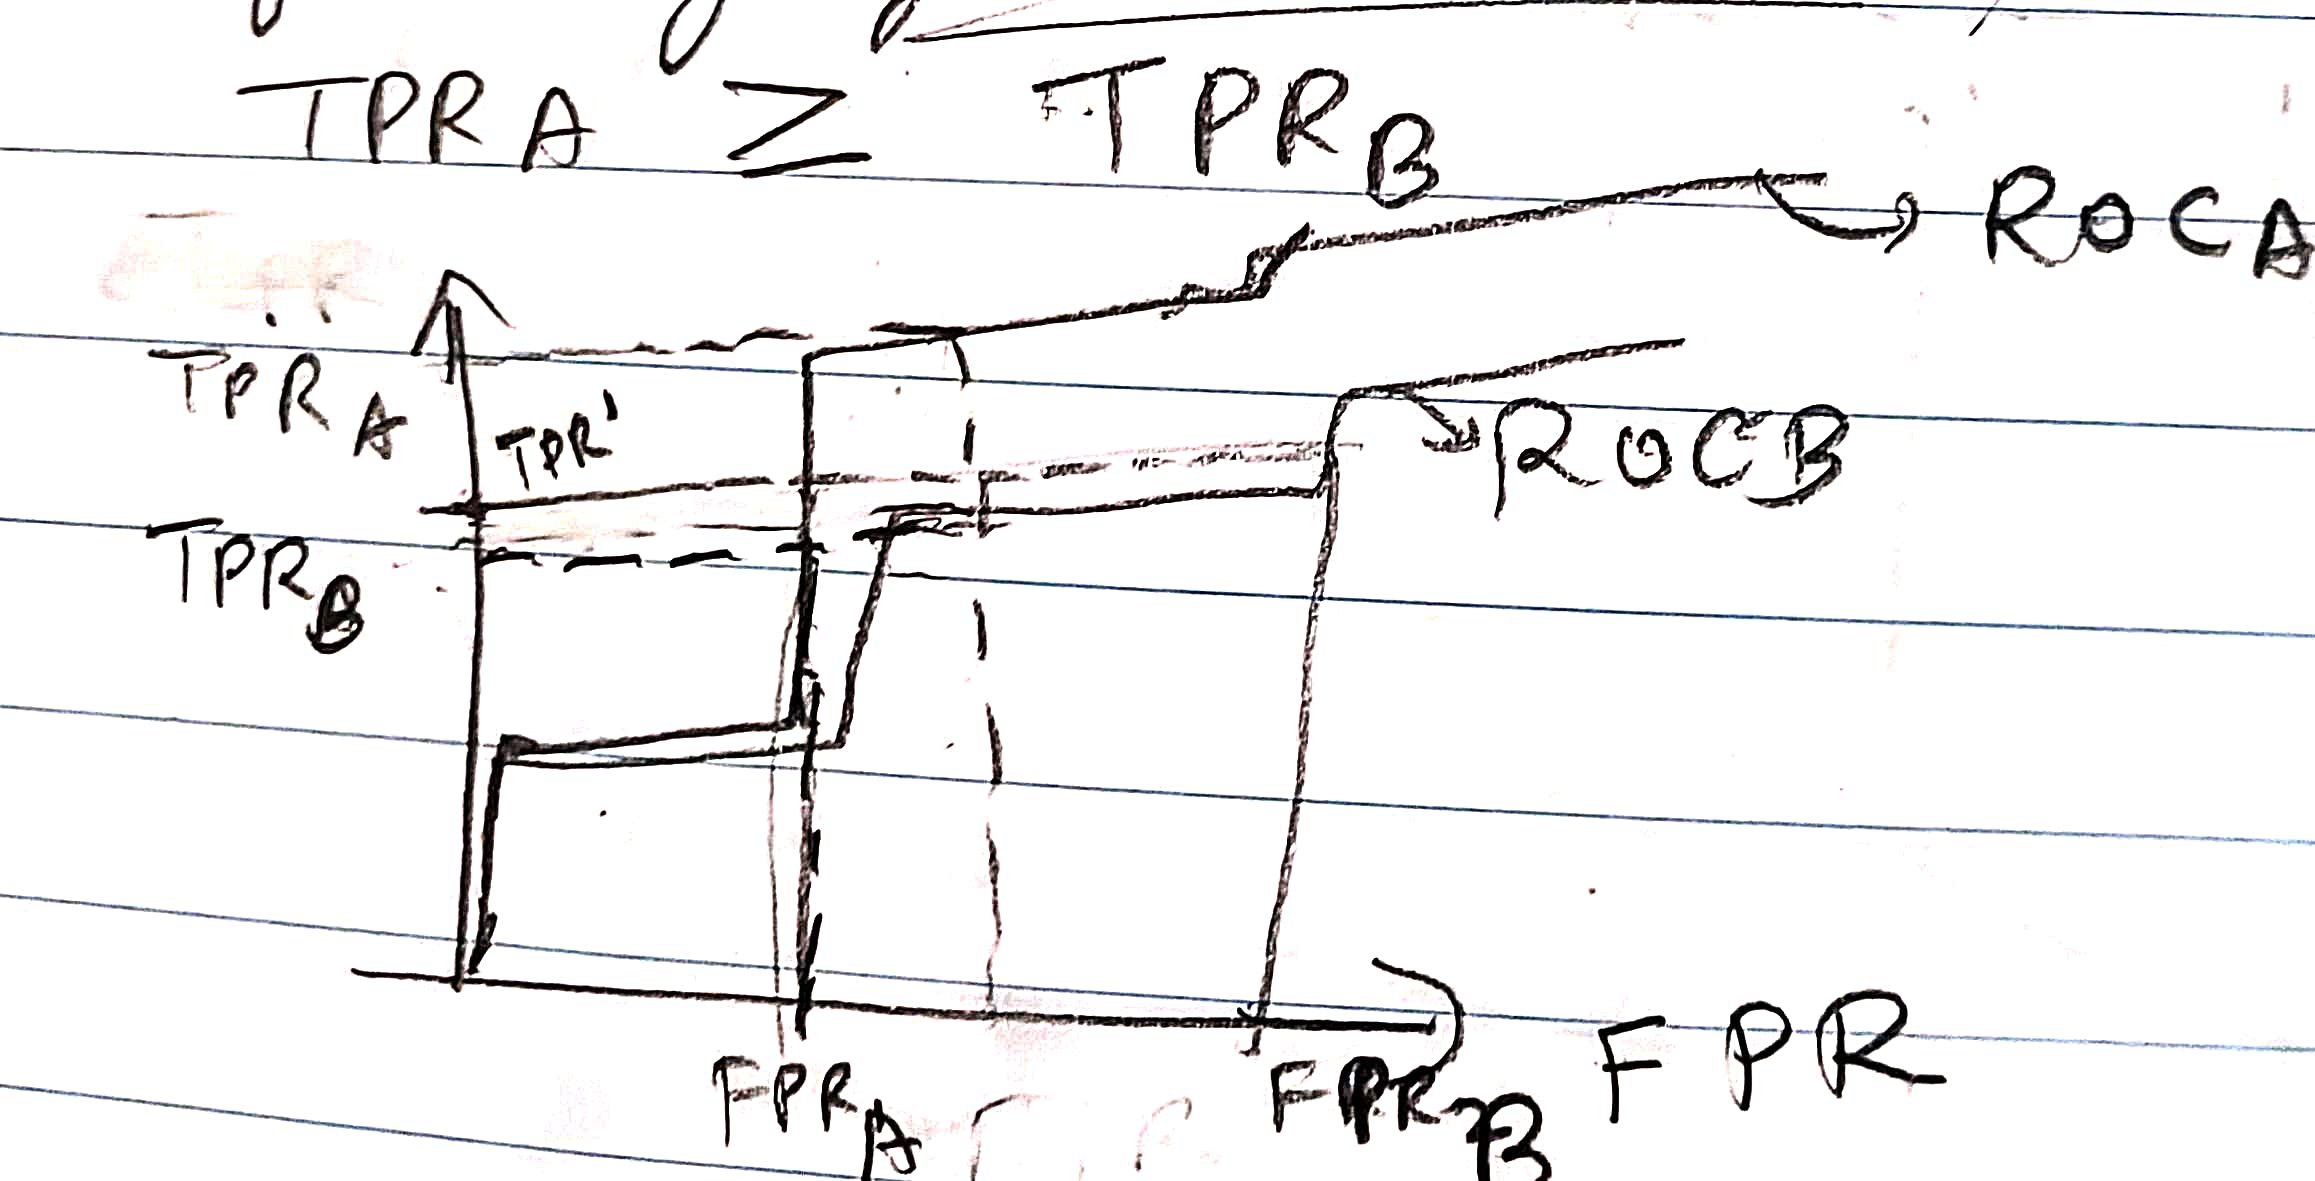 TPRA ≥ TPRB
ROCA
TPRA
TPR'
ROCB
TPRB
FPR
FPRA
FPRB